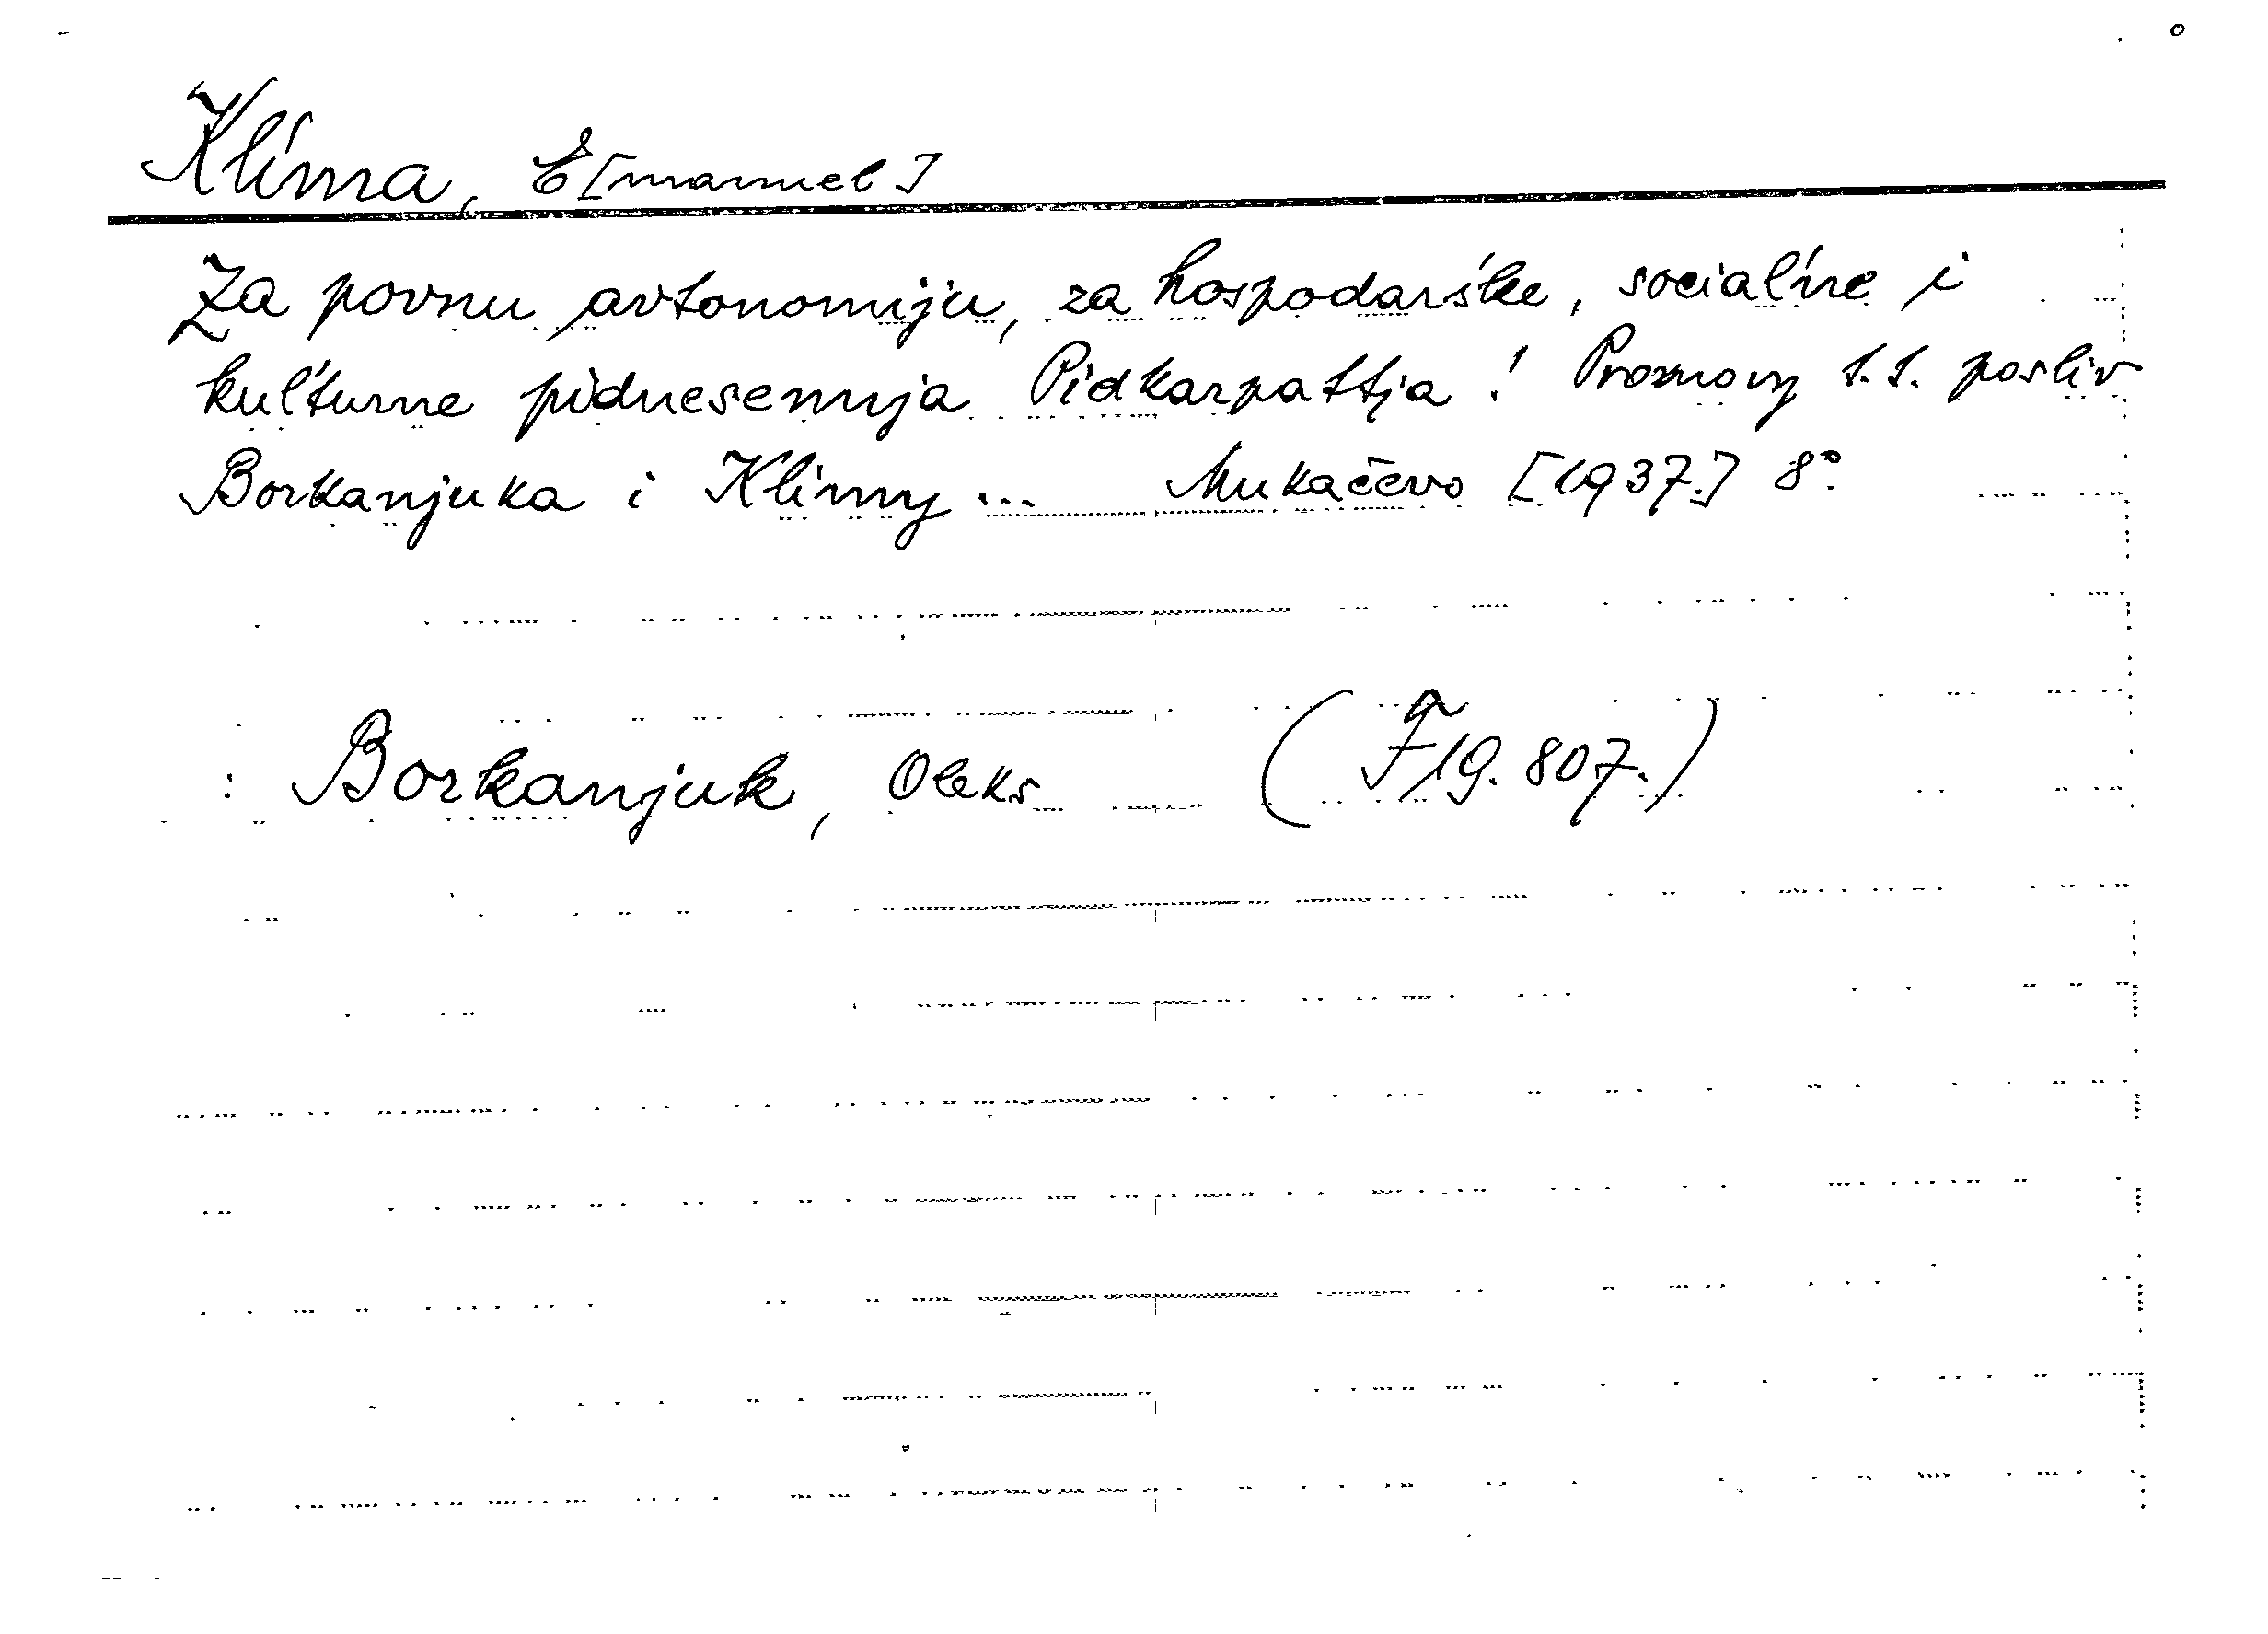 Klíma, E[manuel]
Za povnu avtonomiju, za hospodarśke, socialńe i
kuľturne pidnesennja Pidkarpattja! Promovy t.t. posliv
Borkanjuka i Klimy ... Mukačevo [1937.] 8°.
: Borkanjuk, Oleks (F19.807.)